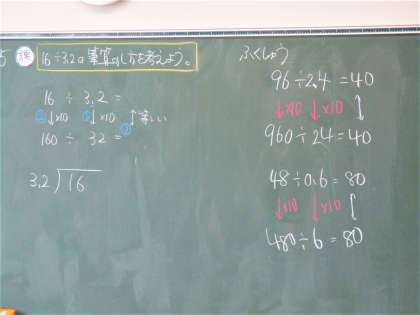 5 課 16÷3.2の筆算のし方を考えよう。
16 ÷ 3.2 =
② ↓×10 ① ↓×10 ↑ 等しい
160 ÷ 32 = ③
3.2)16
ふくしゅう
96÷2.4=40
↓×10 ↓×10 ↑
960÷24=40
48÷0.6=80
↓×10 ↓×10 ↑
480÷6=80